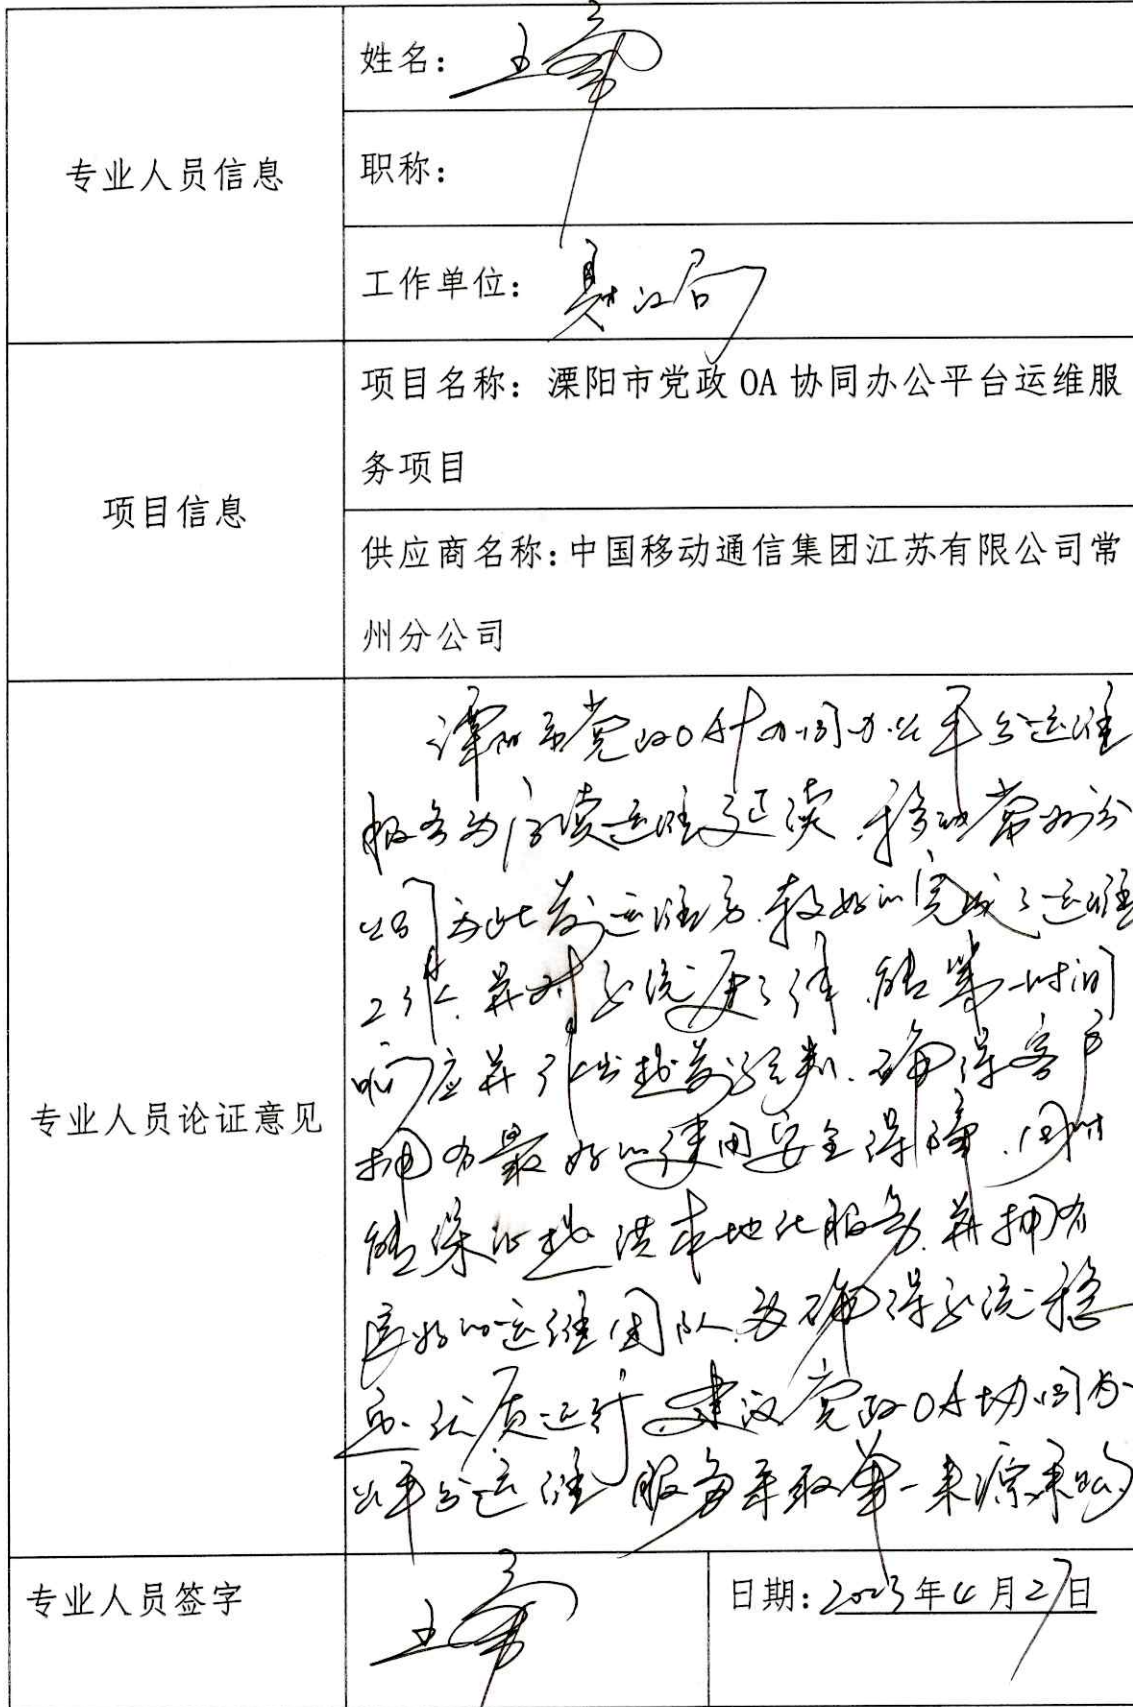 专业人员信息
姓名：王
职称：
工作单位：局
项目信息
项目名称：溧阳市党政 OA 协同办公平台运维服
务项目
供应商名称：中国移动通信集团江苏有限公司常
州分公司
专业人员论证意见
溧阳市党政OA协同办公平台运维
服务为后续运维延续，移动常州分
公司为此前运维方，较好的完成了运维
工作，并对系统了解，能第一时间
响应并作出超前预判，确保客户
拥有最好的使用安全保障，同时
能保证提供本地化服务，并拥有
良好的运维团队，为确保系统稳
定、优质运行，建议党政OA协同办
公平台运维服务采取单一来源采购
专业人员签字
王
日期：2023年4月27日